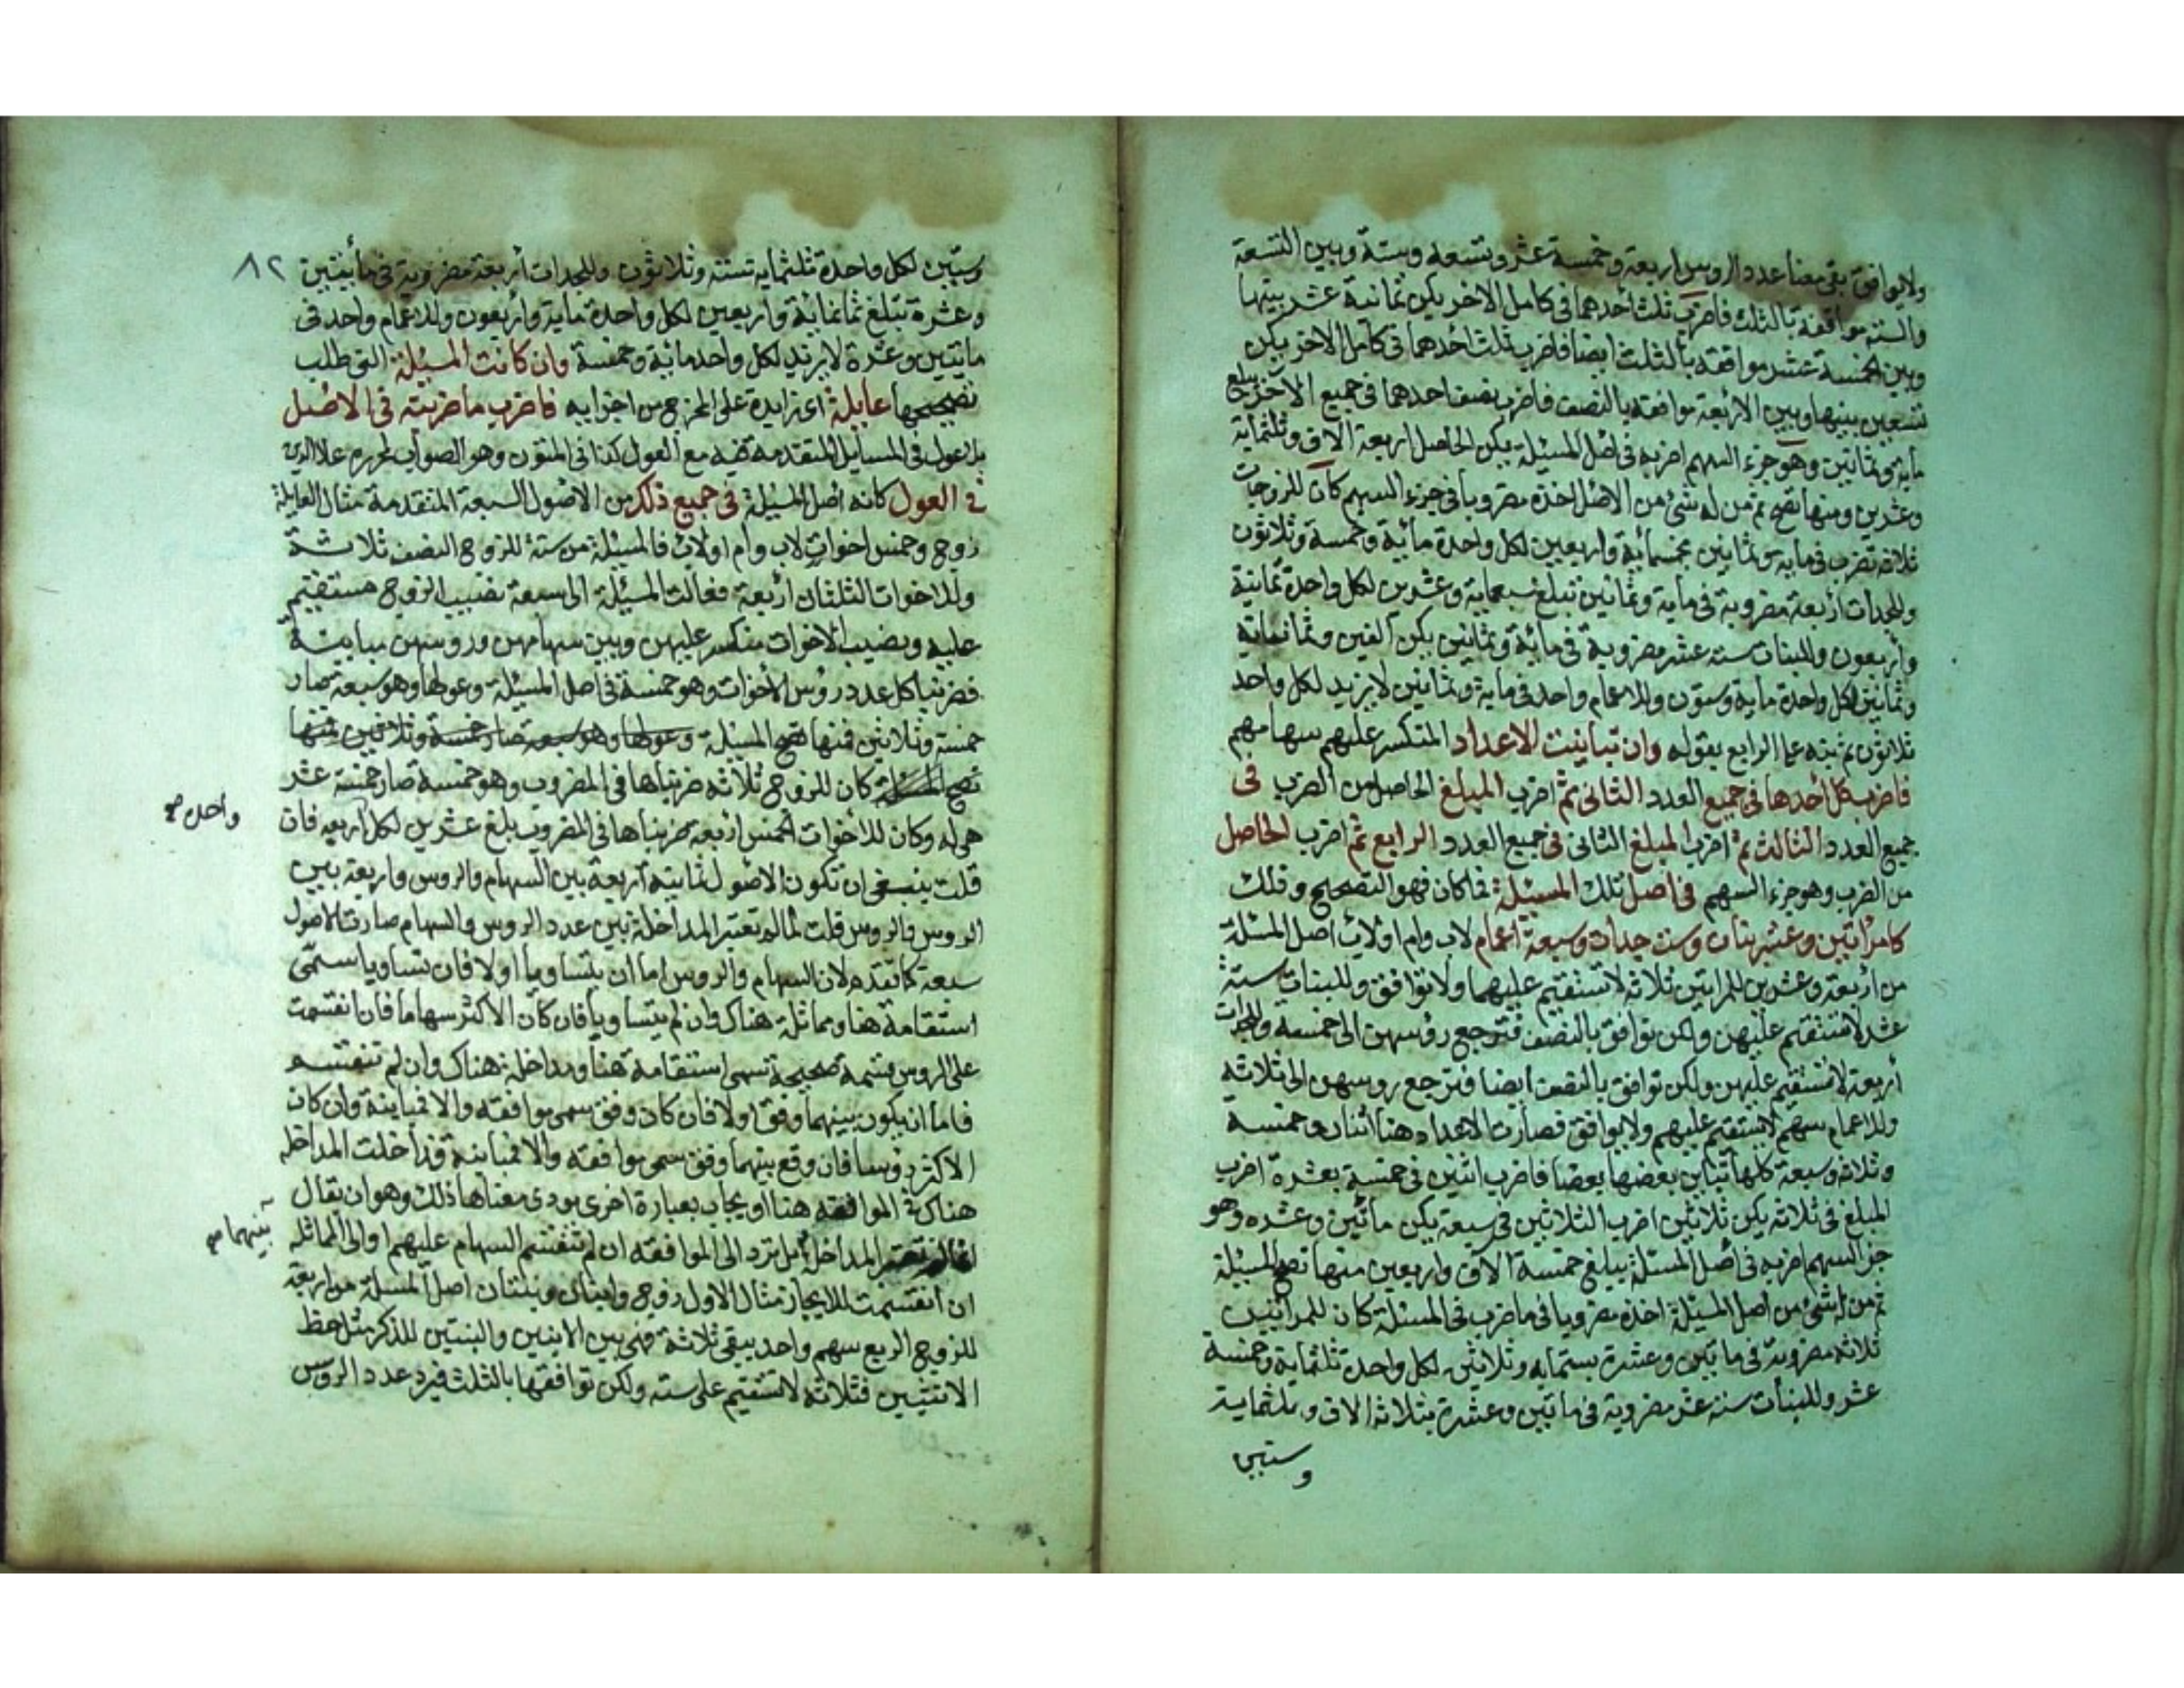 ولا يوافق بقى معنا عدد الروس اربعة وخمسة عشر وتسعه وستة وبين التسعة
والستة موافقة بالثلث فاضرب ثلث احدهما فى كامل الاخر يكن ثمانية عشر بينها
وبين الخمسة عشر موافقة بالثلث ايضا فاضرب ثلث احدهما فى كامل الاخر يكن
تسعين بينها وبين الاربعة موافقة بالنصف فاضرب نصف احدهما فى جميع الآخر يبلغ
ماية وثمانين وهو جزء السهم اضربه فى اصل المسئلة يكن الحاصل اربعة الاف وثلثماية
وعشرين ومنها تصح ثم من له شئ من الاصل اخذه مضروبا فى جزء السهم كان للزوجات
ثلاثه تضرب فى ماية وثمانين بخمسمائة واربعين لكل واحدة مائية وخمسة وثلاثون
وللجدات أربعة مضروبة فى ماية وثمانين تبلغ سبعماية وعشرين لكل واحدة ثمانية
وأربعون وللبنات ستة عشر مضروبة فى مائة وثمانين يكن ألفين وثمانماية
وثمانين لكل واحدة ماية وستون وللاعمام واحد فى ماية وثمانين لا يزيد لكل واحد
ثلاثون ثم نبه على الرابع بقوله وان تباينت الاعداد المنكسر عليهم سهامهم
فاضرب كل أحدها فى جميع العدد الثانى ثم اضرب المبلغ الحاصل من الضرب فى
جميع العدد الثالث ثم اضرب المبلغ الثانى فى جميع العدد الرابع ثم اضرب الحاصل
من الضرب وهو جزء السهم فى اصل تلك المسئلة فما كان فهو التصحيح وذلك
كامرأتين وعشر بنات وست جدات وسبعة اعمام لاب وام اولاب اصل المسئلة
من أربعة وعشرين للمراتين ثلاثه لا تستقيم عليهما ولا توافق وللبنات ستة
عشر لا تستقيم عليهن ولكن توافق بالنصف فترجع رؤسهن الى خمسة وللجدات
أربعة لا تستقيم عليهن ولكن توافق بالنصف ايضا فترجع روسهن الى ثلاثة
وللاعمام سهم لا يستقيم عليهم ولا يوافق فصارت الاعداد هنا اثنان وخمسة
وثلاثة وسبعة كلها تباين بعضها بعضا فاضرب اثنين فى خمسة بعشرة اضرب
المبلغ فى ثلاثه يكن ثلاثين اضرب الثلاثين فى سبعة يكن مأتين وعشره وهو
جزء السهم اضربه فى اصل المسئلة يبلغ خمسة الاف واربعين منها تصح المسئلة
ثم من له شئ من اصل المسئلة اخذه مضروبا فى ما ضرب فى المسئلة كان للمراتين
ثلاثه مضروبة فى مأتين وعشرة بستمايه وثلاثين لكل واحدة ثلثماية وخمسة
عشر وللبنات ستة عشر مضروبة فى مأتين وعشرة بثلاثة الاف وثلثماية
وستين
٨٢
وستين لكل واحدة ثلثمايه ستة وثلاثون وللجدات أربعة مضروبة فى مأيتين
وعشرة تبلغ ثمانمائة واربعين لكل واحدة ماية وأربعون وللاعمام واحد فى
مايتين وعشرة لا يزيد لكل واحد مائة وخمسة وان كانت المسئلة التى طلب
تصحيحها عايلة اى زايدة على المخرج من اجزايه فاضرب ما ضربته فى الاصل
بلا عول فى المسايل المتقدمة فيه مع العول كذا فى المتون وهو الصواب
فى العول كانه اصل المسئلة فى جميع ذلك من الاصول السبعة المتقدمة مثال العايلة
زوج وخمس اخوات لاب وام اولاب فالمسئلة من ستة للزوج النصف ثلاثة
وللاخوات الثلثان أربعة فعالت المسئلة الى سبعة نصيب الزوج مستقيم
عليه ونصيب الاخوات منكسر عليهن وبين سهامهن وروسهن مباينة
فضربنا كل عدد رؤس الأخوات وهو خمسة فى اصل المسئلة وعولها وهو سبعة صار
خمسة وثلاثين فمنها تصح المسئلة وعولها وهو سبعة صار خمسة وثلاثين منها
تصح المسئلة كان للزوج ثلاثه ضربناها فى المضروب وهو خمسة صار خمسة عشر
هى له وكان للاخوات الخمس اربعة ضربناها فى المضروب بلغ عشرين لكل اربعه فان
واحده صح
قلت ينبغى ان تكون الاصول ثمانية أربعة بين السهام والروس واربعة بين
الروس والروس قلت لما لم تعتبر المداخلة بين عدد الروس والسهام صارت الاصول
سبعة كما تقدم لان السهام والروس اما ان يتساويا أو لا فان تساويا سمى
استقامة هنا ومماثلة هناك وان لم يتساويا فان كان الأكثر سهاما فان انقسمت
على الروس قسمة صحيحة تسمى استقامة هنا ومداخلة هناك وان لم تنقسم
فاما ان يكون بينهما وفق اولا فان كان وفق سمى موافقة والا فمباينة وان كان
الاكثر رؤسا فان وقع بينهما وفق سمى موافقة والا فمباينة فدخلت المداخله
هناك فى الموافقه هنا او يجاب بعبارة اخرى يودى معناها ذلك وهو ان يقال
المداخلة بل ترد الى الموافقه ان لم تنقسم السهام عليهم او الى المماثله
بينهما صح
ان انقسمت للايجاز مثال الاول زوج وابنان وبنتان اصل المسئلة من اربعة
للزوج الربع سهم واحد يبقى ثلاثة فهى بين الابنين والبنتين للذكر مثل حظ
الانثيين فثلاثه لا تستقيم على سته ولكن توافقها بالثلث فيرد عدد الروس